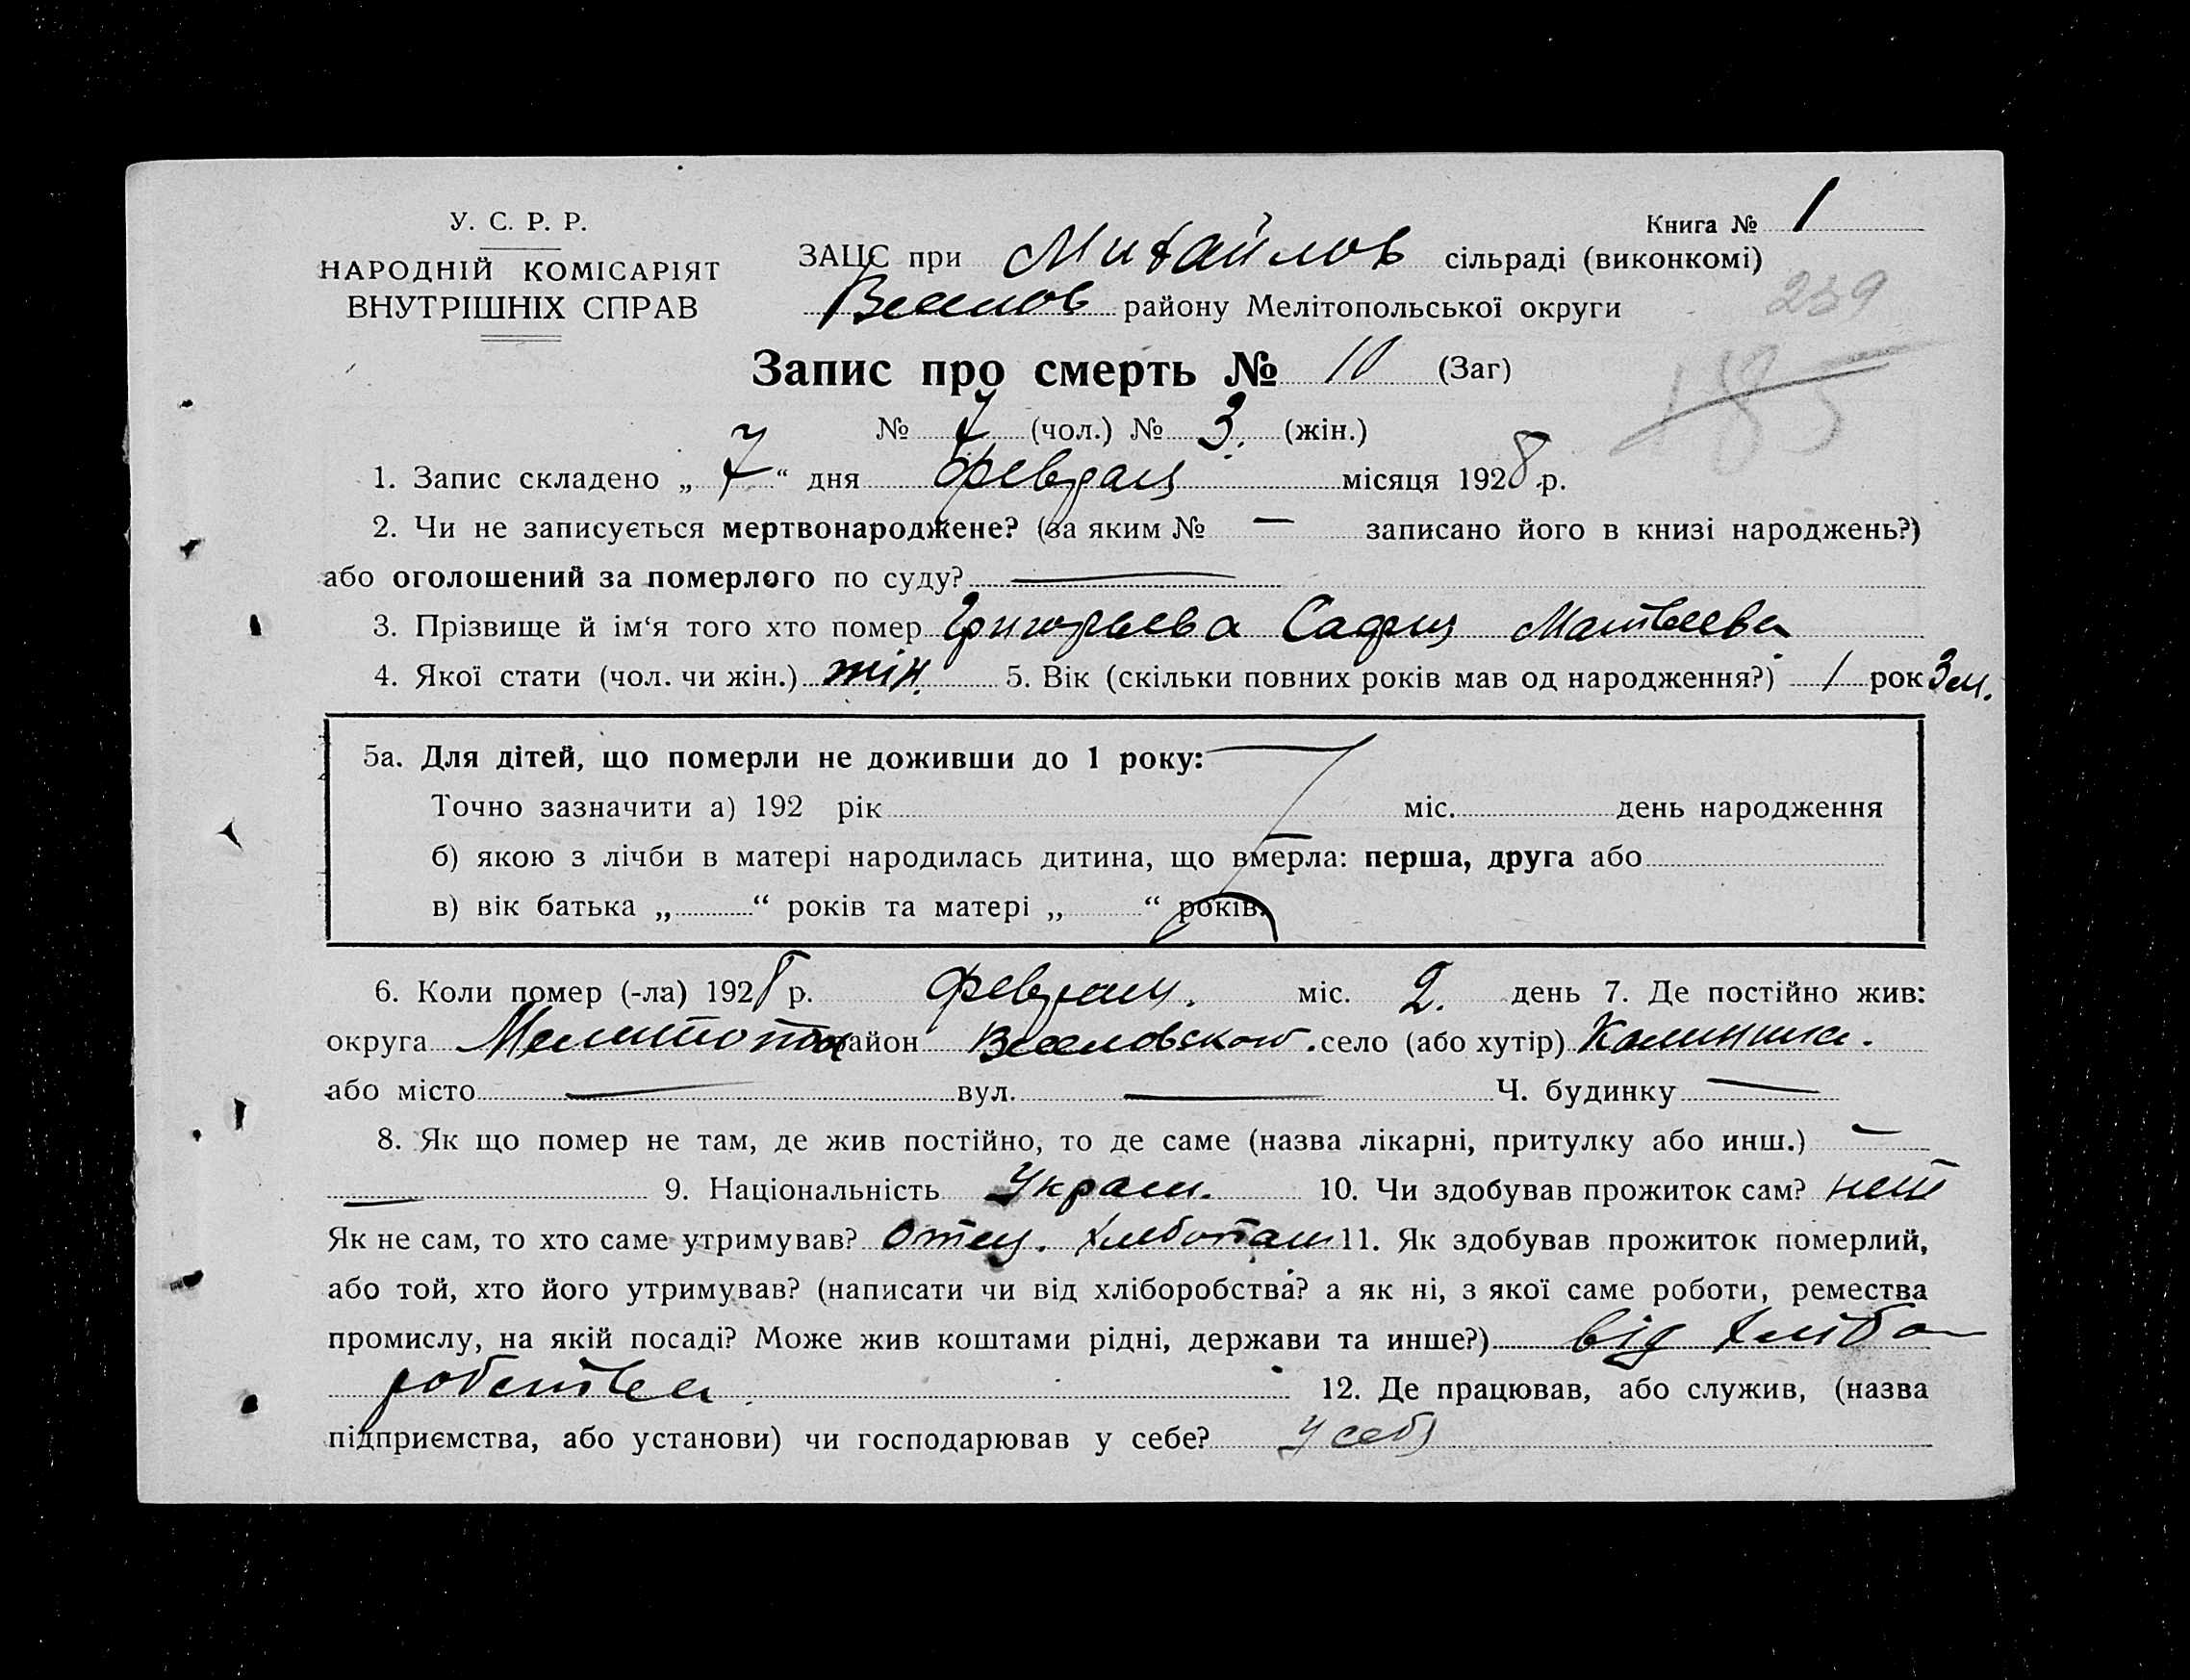 У. С. Р. Р.
НАРОДНІЙ КОМІСАРІЯТ
ВНУТРІШНІХ СПРАВ
Книга № 1
ЗАЦС при Михайлов сільраді (виконкомі)
Веселов району Мелітопольської округи
239
185
Запис про смерть № 10 (Заг)
№ 7 (чол.) № 3. (жін.)
1. Запис складено „ 7 “ дня февраля місяця 1928 р.
2. Чи не записується мертвонароджене? (за яким № — записано його в книзі народжень?)
або оголошений за померлого по суду? —
3. Прізвище й ім‘я того хто помер Григорьева София Матвеева
4. Якої стати (чол. чи жін.) жін. 5. Вік (скільки повних років мав од народження?) 1 рок 3 м.
5а. Для дітей, що померли не доживши до 1 року:
Точно зазначити а) 192 рік міс. день народження
б) якою з лічби в матері народилась дитина, що вмерла: перша, друга або
в) вік батька „ “ років та матері „ “ років.
6. Коли помер (-ла) 1928 р. февраля. міс. 2. день 7. Де постійно жив:
округа Мелитопол район Веселовского. село (або хутір)
або місто — вул. — Ч. будинку —
8. Як що помер не там, де жив постійно, то де саме (назва лікарні, притулку або инш.) —
— 9. Національність Украин. 10. Чи здобував прожиток сам? нет
Як не сам, то хто саме утримував? Отец. хлебопаш 11. Як здобував прожиток померлий,
або той, хто його утримував? (написати чи від хліборобства? а як ні, з якої саме роботи, ремества
промислу, на якій посаді? Може жив коштами рідні, держави та инше?) від хлібо
робства. 12. Де працював, або служив, (назва
підприємства, або установи) чи господарював у себе? у себя